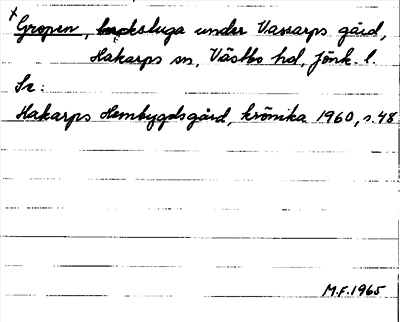 x Gropen, backstuga under Vassarps gård,
Hakarps sn, Västbo hd, Jönk. l.
Se:
Hakarps Hembygdsgård, krönika 1960, s. 48
M.F. 1965